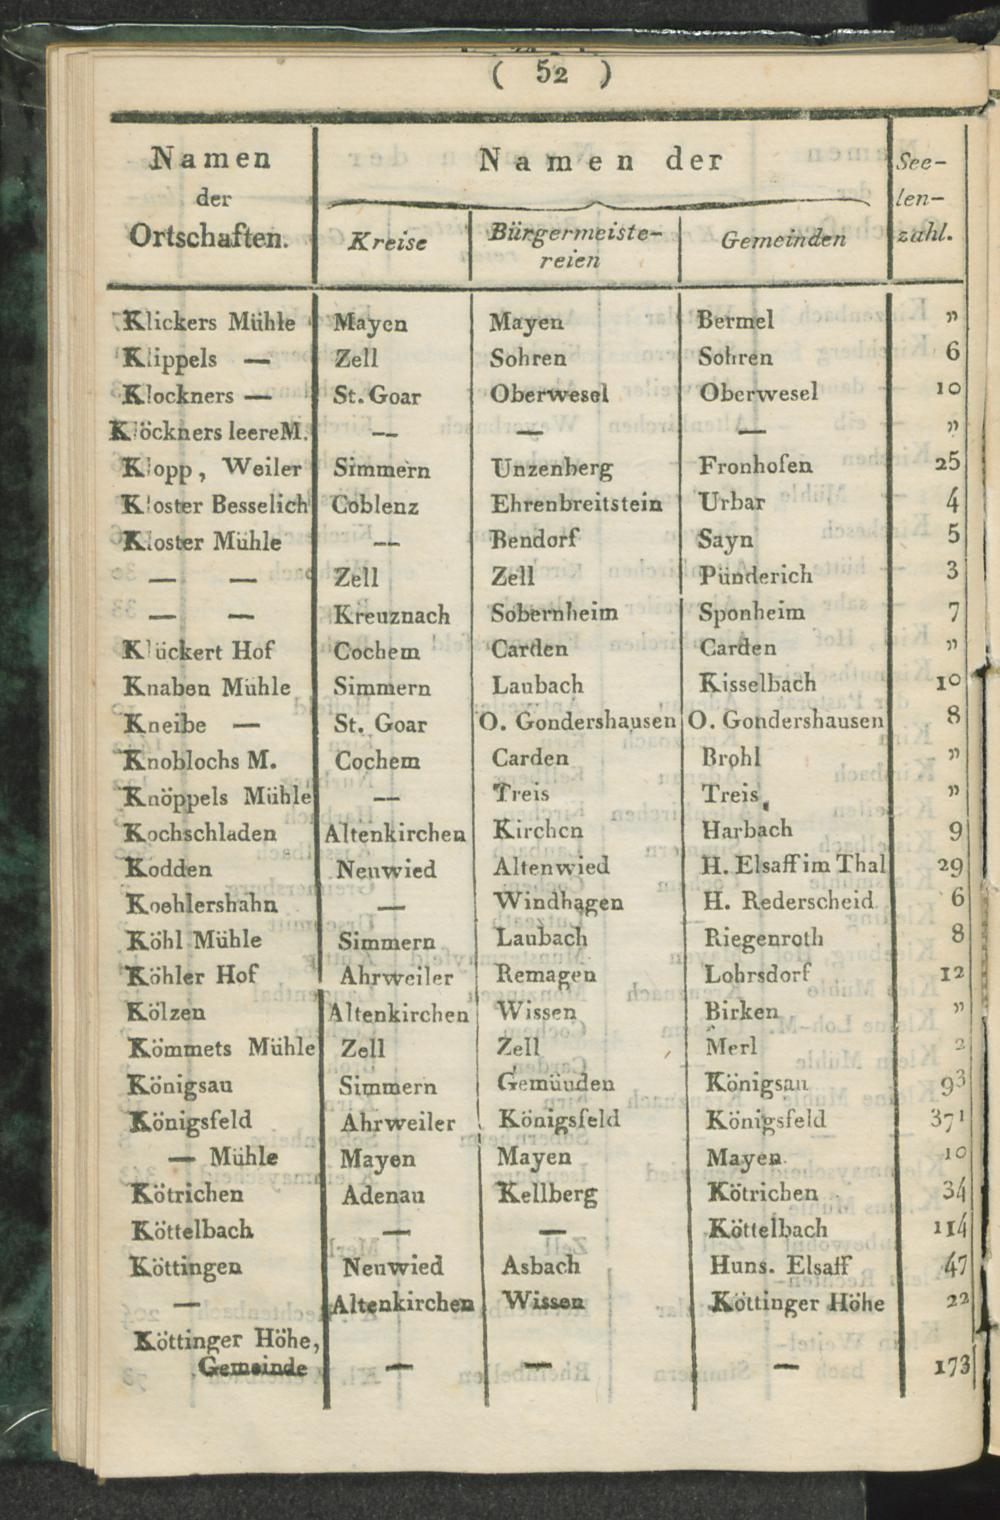 ( 52 )
Namen der Ortschaften. | Namen der Kreise | Bürgermeiste-reien | Gemeinden | See-len-zahl.
Klickers Mühle | Mayen | Mayen | Bermel | "
Klippels — | Zell | Sohren | Sohren | 6
Klockners — | St. Goar | Oberwesel | Oberwesel | 10
Klöckners leere M. | — | — | — | "
Klopp, Weiler | Simmern | Unzenberg | Fronhofen | 25
Kloster Besselich | Coblenz | Ehrenbreitstein | Urbar | 4
Kloster Mühle | — | Bendorf | Sayn | 5
— — | Zell | Zell | Pünderich | 3
— — | Kreuznach | Sobernheim | Sponheim | 7
Klückert Hof | Cochem | Carden | Carden | "
Knaben Mühle | Simmern | Laubach | Kisselbach | 10
Kneibe — | St. Goar | O. Gondershausen | O. Gondershausen | 8
Knoblochs M. | Cochem | Carden | Brohl | "
Knöppels Mühle | — | Treis | Treis | "
Kochschladen | Altenkirchen | Kirchen | Harbach | 9
Kodden | Neuwied | Altenwied | H. Elsaff im Thal | 29
Koehlershahn | — | Windhagen | H. Rederscheid | 6
Köhl Mühle | Simmern | Laubach | Riegenroth | 8
Köhler Hof | Ahrweiler | Remagen | Lohrsdorf | 12
Kölzen | Altenkirchen | Wissen | Birken | "
Kömmets Mühle | Zell | Zell | Merl | 2
Königsau | Simmern | Gemünden | Königsau | 93
Königsfeld | Ahrweiler | Königsfeld | Königsfeld | 371
— Mühle | Mayen | Mayen | Mayen | 10
Kötrichen | Adenau | Kellberg | Kötrichen | 34
Köttelbach | — | — | Köttelbach | 114
Köttingen | Neuwied | Asbach | Huns. Elsaff | 47
— | Altenkirchen | Wissen | Köttinger Höhe | 22
Köttinger Höhe,
Gemeinde | — | — | — | 173